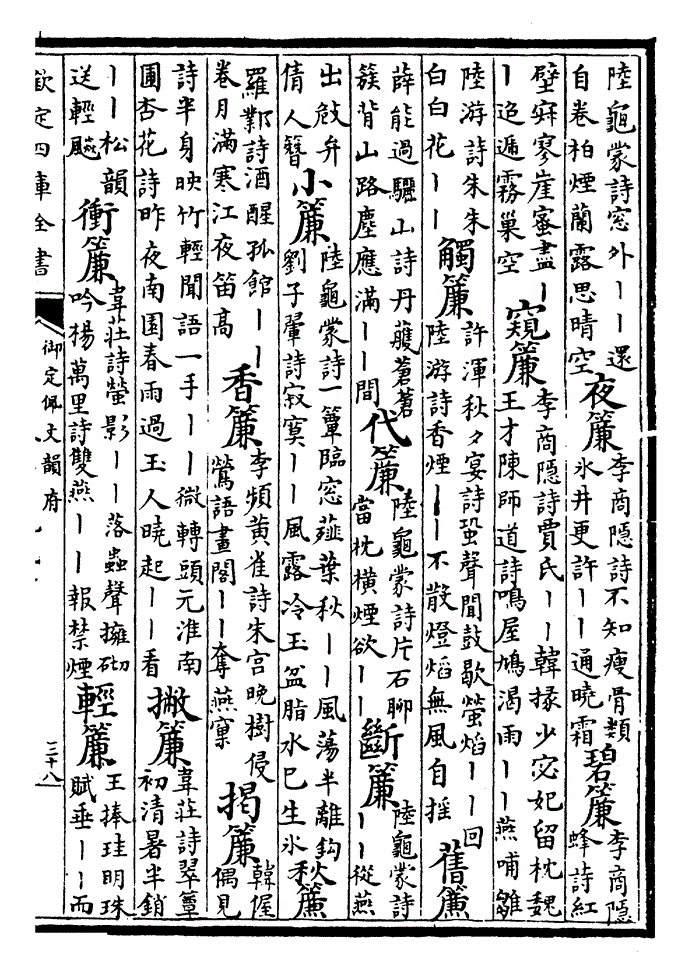 陸龜蒙詩窓外丨丨還自卷柏煙蘭露思晴空 夜簾 李商隱詩不知瘦骨類氷井更許丨丨通曉霜 碧簾 李商隱蜂詩紅
壁寂寥崖蜜盡丨丨迢遞霧巢空 窺簾 李商隱詩賈氏丨丨韓掾少宓妃留枕魏王才陳師道詩鳴屋鳩渴雨丨丨燕哺雛
陸游詩朱朱白白花丨丨 觸簾 許渾秋夕宴詩蛩聲聞鼓歇螢焰丨丨回陸游詩香煙丨丨不散燈焰無風自揺 舊簾
薛能過驪山詩丹雘蒼蒼簇背山路塵應滿丨丨間 代簾 陸龜蒙詩片石聊當枕橫煙欲丨丨 斷簾 陸龜蒙詩丨丨從燕
出敧弁倩人簪 小簾 陸龜蒙詩一簟臨窓薤葉秋丨丨風蕩半離鈎劉子翬詩寂寞丨丨風露冷玉盆脂水已生氷 秋簾
羅鄴詩酒醒孤館丨丨卷月滿寒江夜笛高 香簾 李頻黃雀詩朱宮晚樹侵鶯語畫閣丨丨奪燕窠 揭簾 韓偓偶見
詩半身映竹輕聞語一手丨丨微轉頭元淮南圃杏花詩昨夜南園春雨過玉人曉起丨丨看 撇簾 韋莊詩翠簟初清暑半銷
丨丨松韻送輕颸 衝簾 韋莊詩螢影丨丨落蟲聲擁砌吟楊萬里詩雙燕丨丨報禁煙 輕簾 王捧珪明珠賦垂丨丨而
欽定四庫全書
御定佩文韻府
三十八